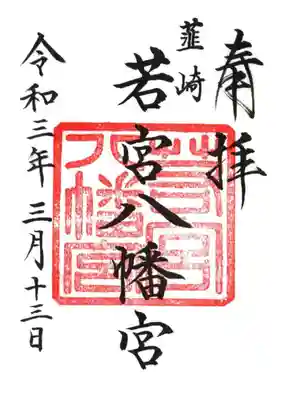 奉拝
韮崎
若宮八幡宮
令和三年三月十三日
若宮
八幡宮